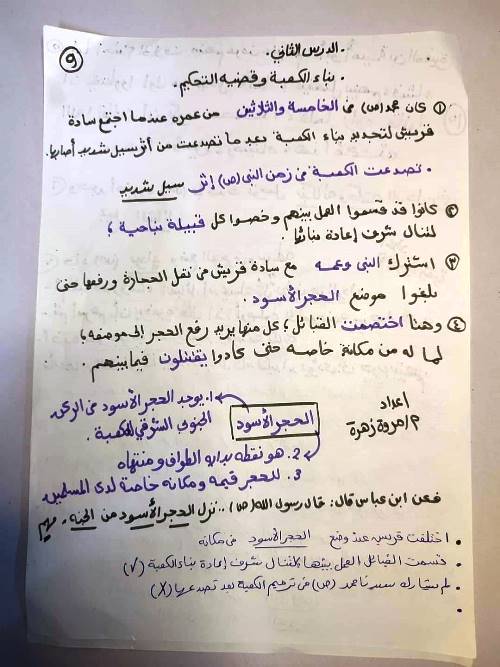 ٩
. الدرس الثاني .
. بناء الكعبة وقضية التحكيم .
① كان محمد (ص) في الخامسة والثلاثين من عمره عندما اجتمع سادة
قريش لتجديد بناء الكعبة بعد ما تصدعت من أثر سيل شديد أصابها.
. تصدعت الكعبة في زمن النبي (ص) إثر سيل شديد
② كانوا قد قسموا العمل بينهم وخصوا كل قبيلة بناحية ؛
لتنال شرف إعادة بنائها .
③ اشترك النبي وعمه مع سادة قريش في نقل الحجارة ورفعها حتى
بلغوا موضع الحجر الأسود .
④ وهنا اختصمت القبائل ؛ كل منها يريد رفع الحجر إلى موضعه ؛
لما له من مكانة خاصة حتى كادوا يقتتلون فيما بينهم .
اعداد
م/مروة زهرة
الحجر الأسود
1. يوجد الحجر الأسود في الركن
الجنوبي الشرقي للكعبة .
2. هو نقطة بداية الطواف ومنتهاه
3. للحجر قيمة ومكانة خاصة لدى المسلمين
فعن ابن عباس قال : قال رسول الله (ص) .. نزل الحجر الأسود من الجنة . مهم
. اختلفت قريش عند وضع الحجر الأسود في مكانه
. قسمت القبائل العمل بينها لتنال شرف إعادة بناء الكعبة (✓)
. لم يشارك سيدنا محمد (ص) في ترميم الكعبة بعد تصدعها (X)